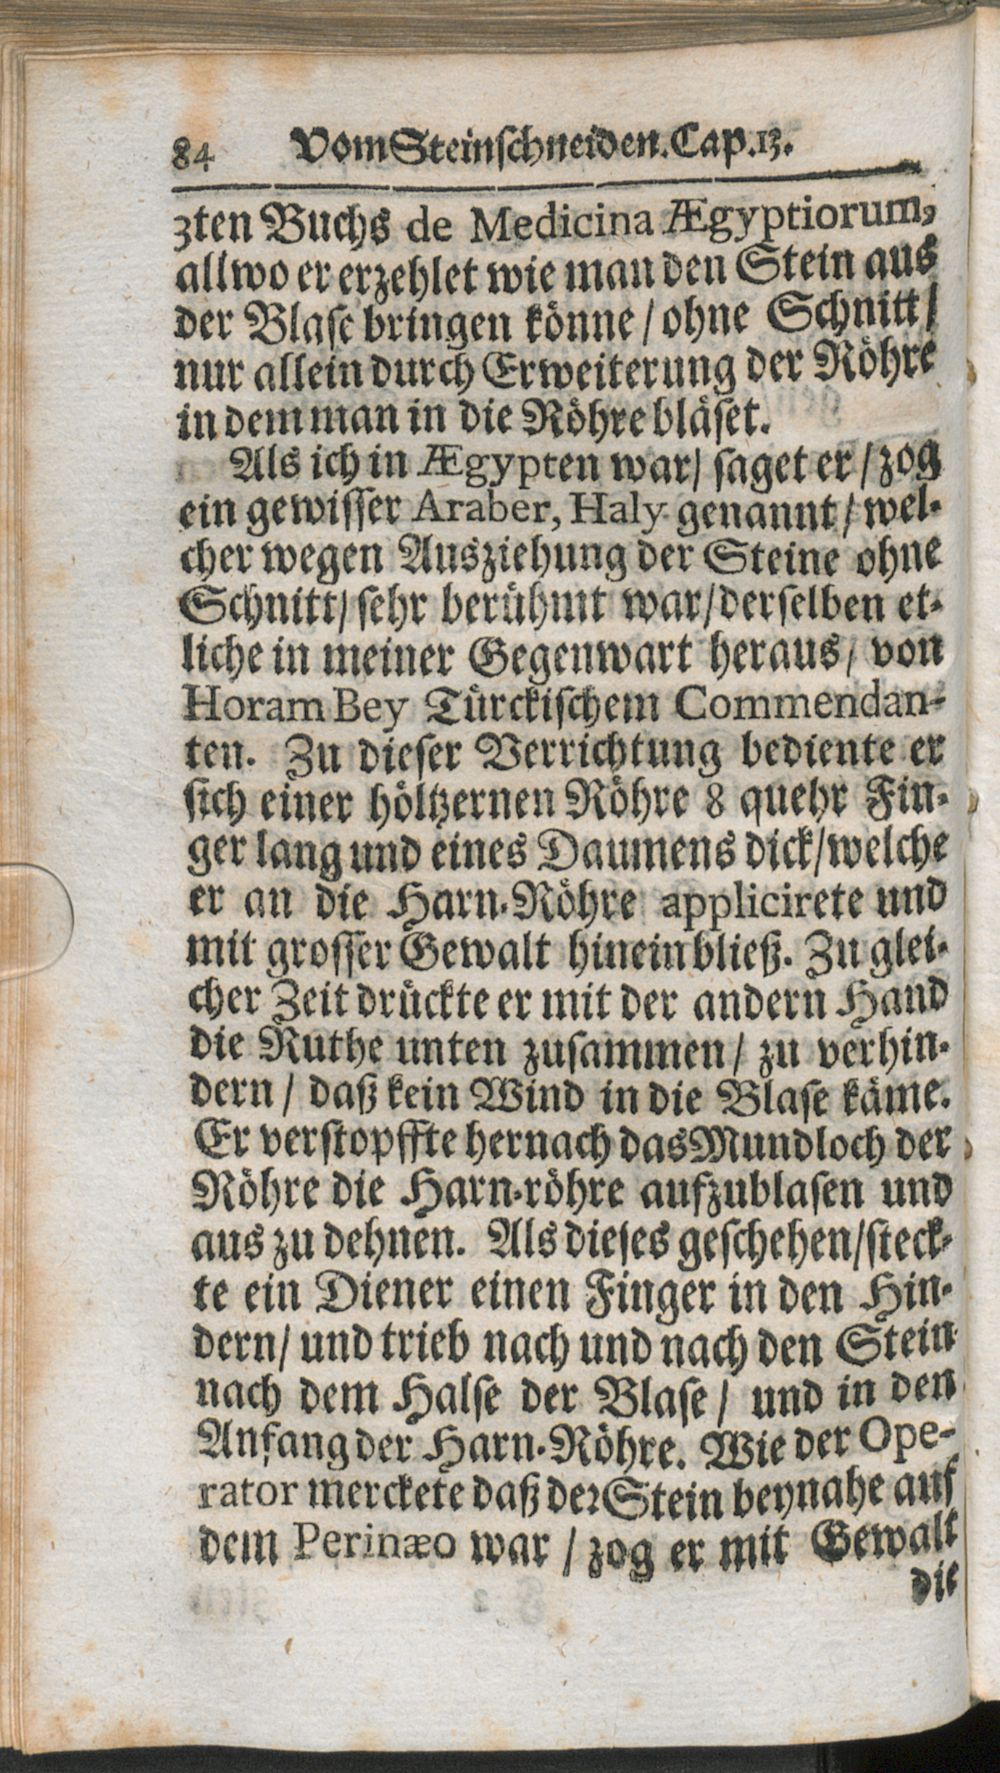 84 Vom Steinschneiden. Cap. 13.
3ten Buchs de Medicina Ægyptiorum,
allwo er erzehlet wie man den Stein aus
der Blase bringen könne / ohne Schnitt /
nur allein durch Erweiterung der Röhre
in dem man in die Röhre bläset.
Als ich in Ægypten war / saget er / zog
ein gewisser Araber, Haly genannt / wel-
cher wegen Ausziehung der Steine ohne
Schnitt / sehr berühmt war / derselben et-
liche in meiner Gegenwart heraus / von
Horam Bey Türckischem Commendan-
ten. Zu dieser Verrichtung bediente er
sich einer höltzernen Röhre 8 quehr Fin-
ger lang und eines Daumens dick / welche
er an die Harn-Röhre applicirete und
mit grosser Gewalt hinein bließ. Zu glei-
cher Zeit drückte er mit der andern Hand
die Ruthe unten zusammen / zu verhin-
dern / daß kein Wind in die Blase käme.
Er verstopffte hernach das Mundloch der
Röhre die Harn-röhre aufzublasen und
aus zu dehnen. Als dieses geschehen / steck-
te ein Diener einen Finger in den Hin-
dern / und trieb nach und nach den Stein
nach dem Halse der Blase / und in den
Anfang der Harn-Röhre. Wie der Ope-
rator merckete daß der Stein beynahe auf
dem Perinæo war / zog er mit Gewalt
die